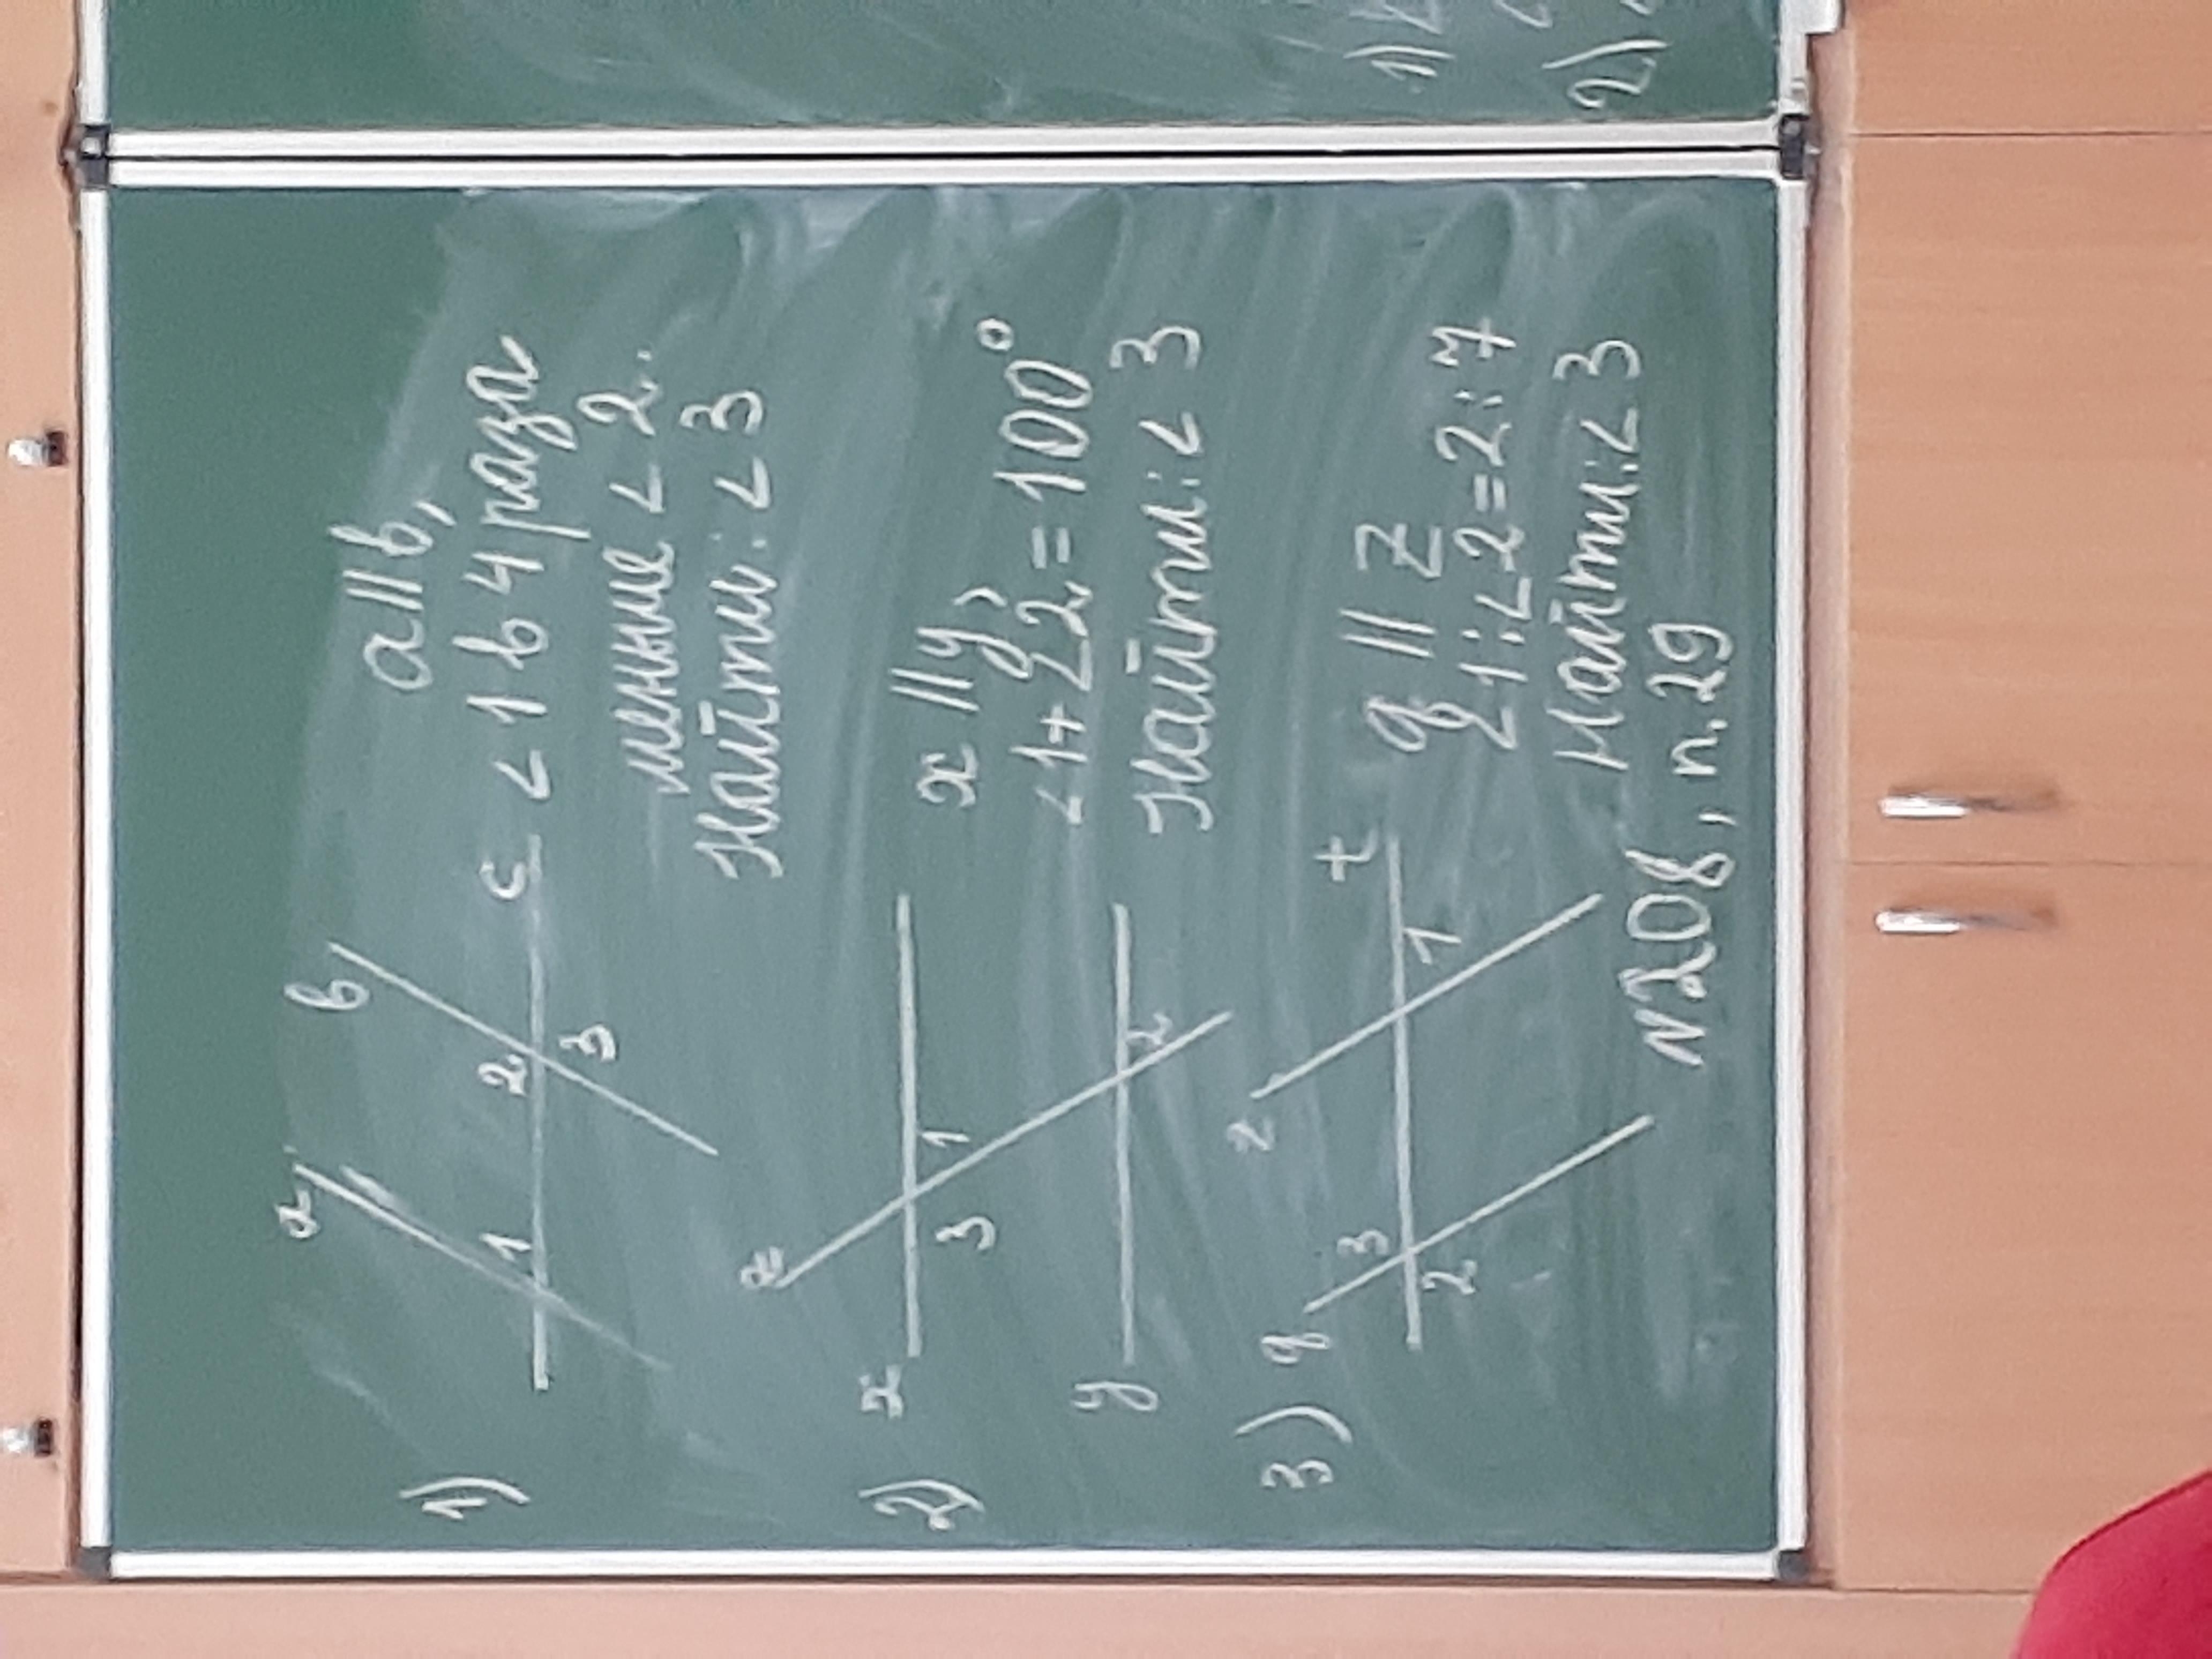 1)
a
b
c
1
2
3
a || b,
< 1 в 4 раза
меньше < 2.
Найти: < 3
2)
x
y
1
3
2
x || y,
< 1 + < 2 = 100°
Найти: < 3
3)
q
z
t
3
2
1
q || z
< 1 : < 2 = 2 : 7
Найти: < 3
N 208, п. 29
1)
2)